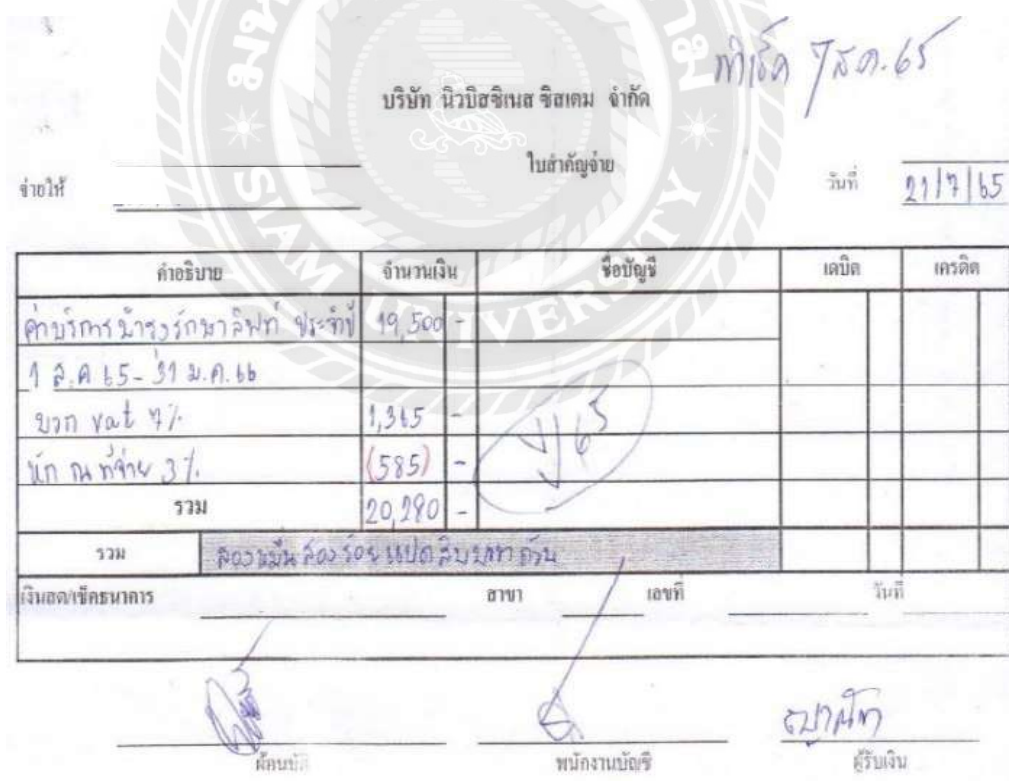 ทำเช็ค 7 ส.ค. 65
บริษัท นิวบิสซิเนส ซิสเตม จำกัด
ใบสำคัญจ่าย
จ่ายให้ วันที่ 21/7/65
คำอธิบาย จำนวนเงิน ชื่อบัญชี เดบิต เครดิต
ค่าบริการบำรุงรักษาลิฟท์ ประจำปี 19,500 -
1 ส.ค 65 - 31 ม.ค. 66
บวก vat 7% 1,365 -
หัก ณ ที่จ่าย 3% (585) -
รวม 20,280 -
รวม สองหมื่นสองร้อยแปดสิบบาทถ้วน
เงินสด/เช็คธนาคาร สาขา เลขที่ วันที่
ผู้อนุมัติ พนักงานบัญชี ผู้รับเงิน
SIAM UNIVERSITY